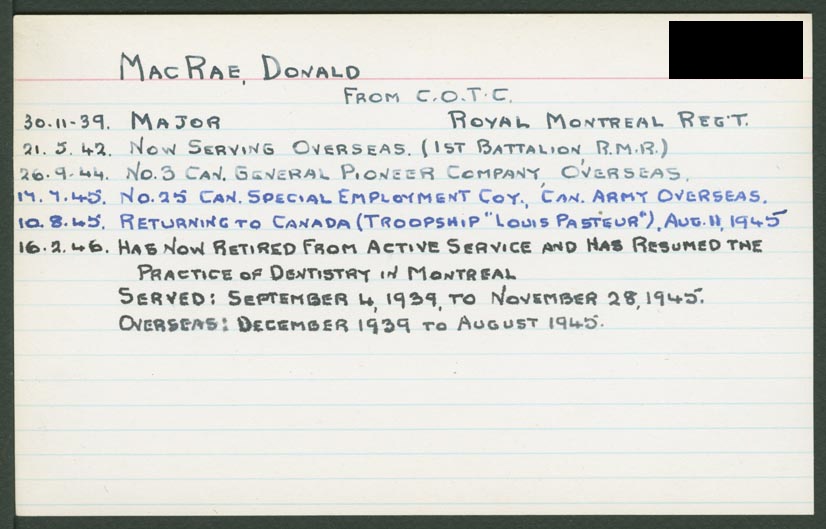 MacRae, Donald
From C.O.T.C.
30.11-39. Major Royal Montreal Reg't.
21. 5. 42. Now Serving Overseas. (1st Battalion, R.M.R.)
26.9.44. No. 3 Can. General Pioneer Company, Overseas.
17.7.45. No. 25 Can. Special Employment Coy., Can. Army Overseas.
10.8.45. Returning to Canada (Troopship "Louis Pasteur"), Aug. 11, 1945
16.2.46. Has Now Retired From Active Service and Has Resumed the
Practice of Dentistry in Montreal
Served: September 4, 1939, to November 28, 1945.
Overseas: December 1939 to August 1945.